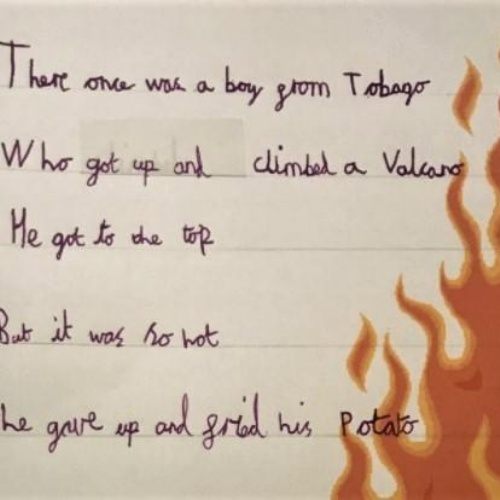 There once was a boy from Tobago
Who got up and climbed a Valcano
He got to the top
But it was so hot
he gave up and fried his Potato